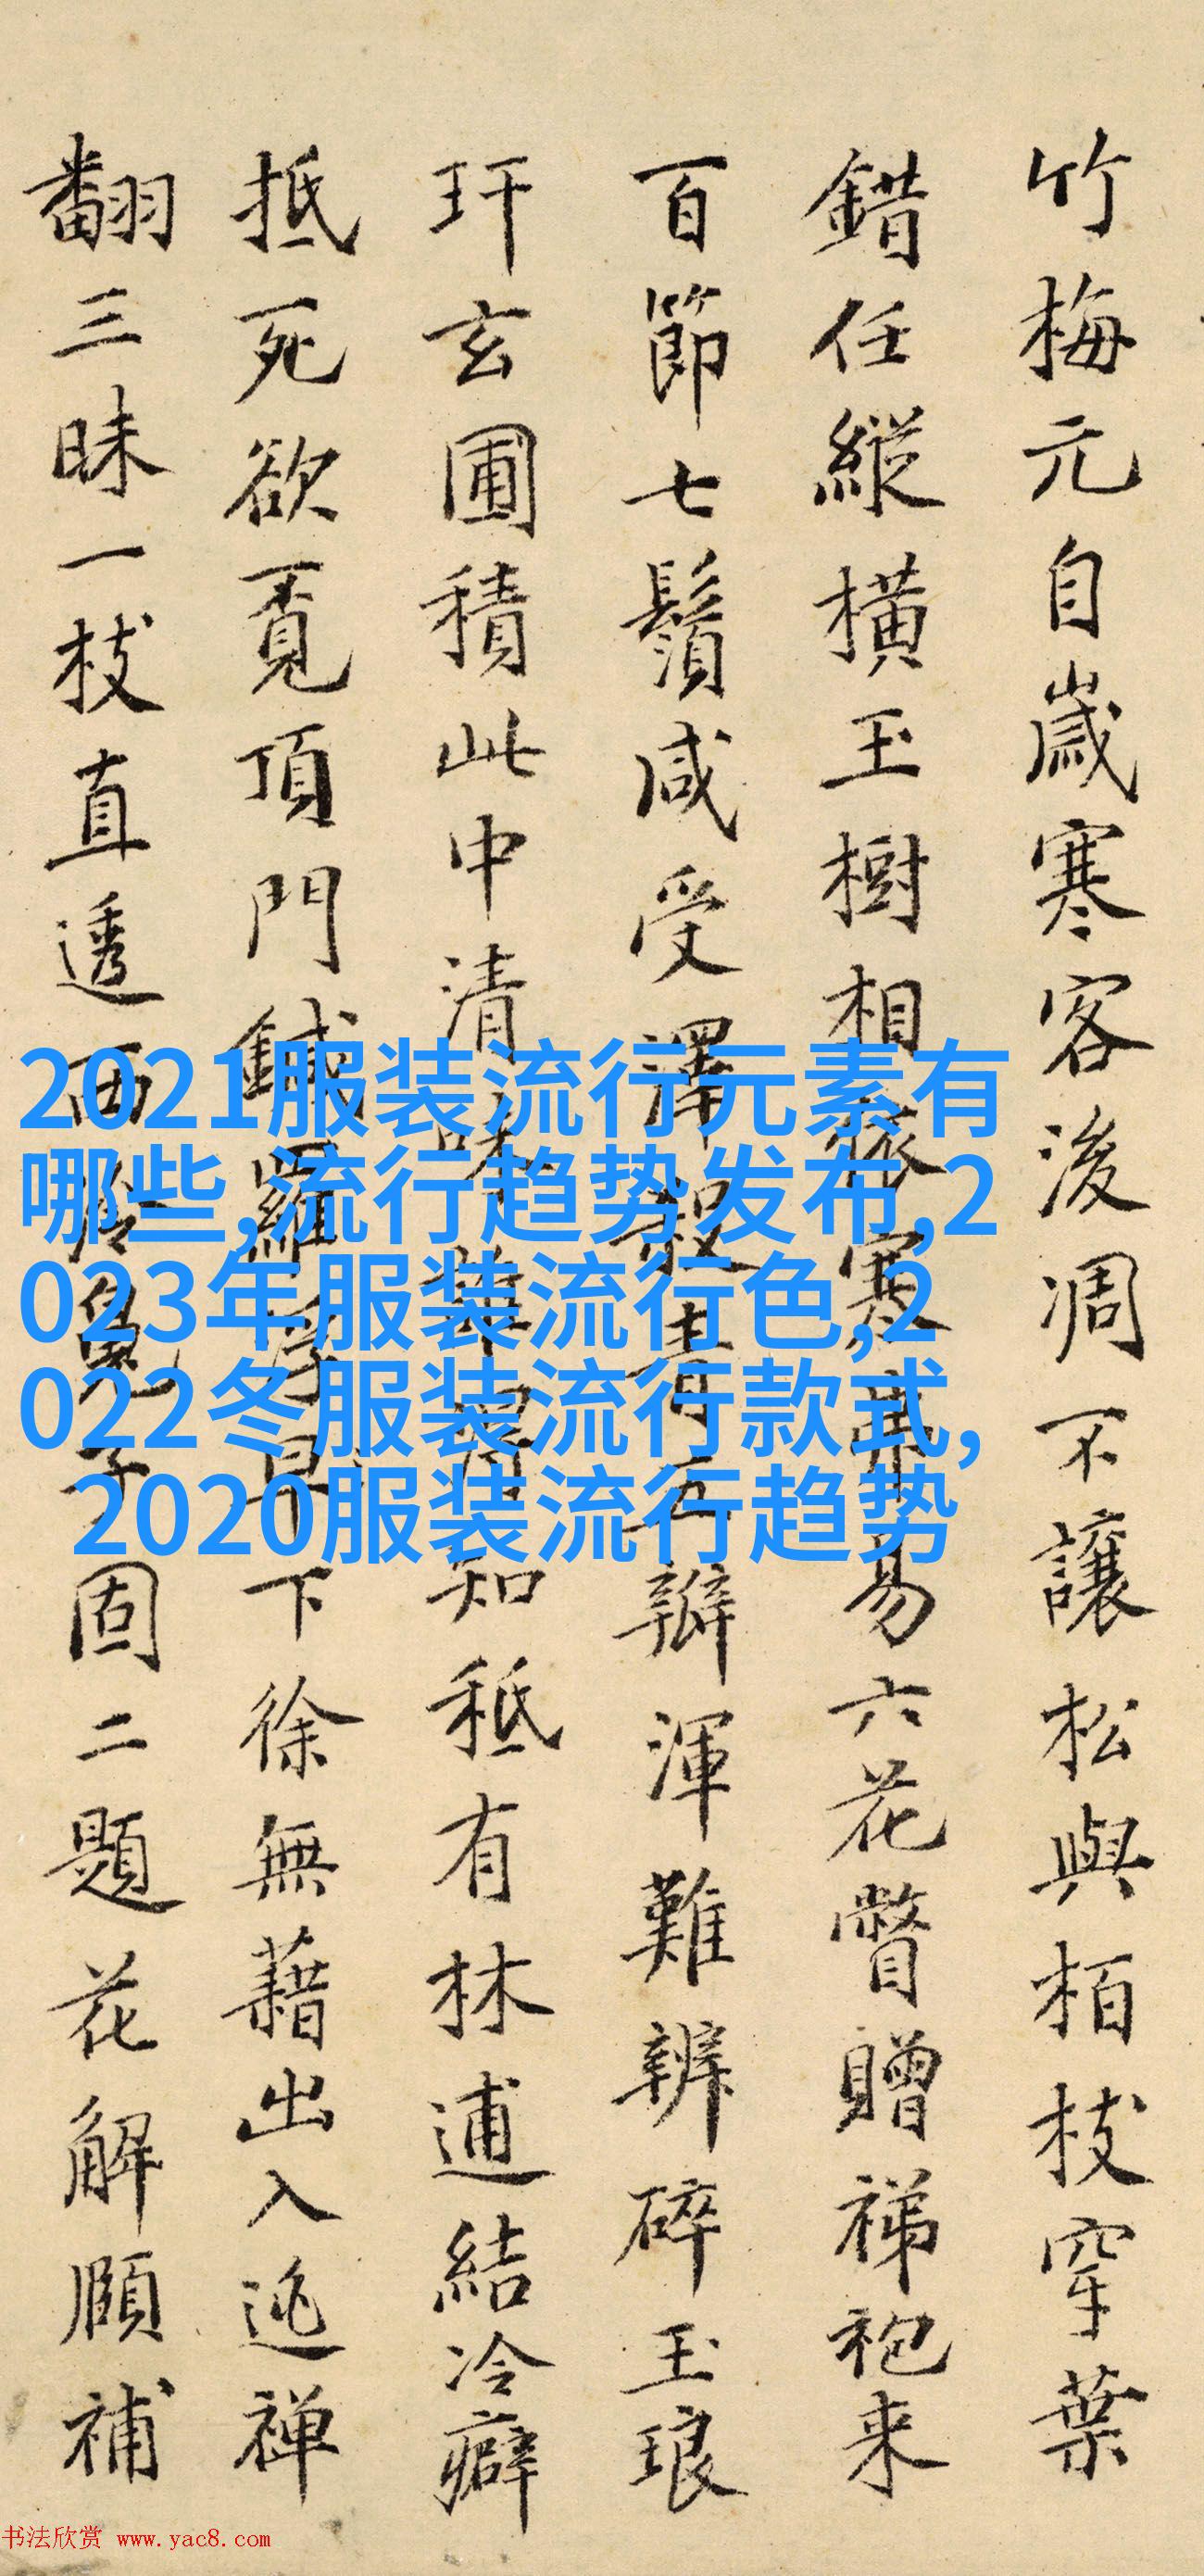 竹梅元自歲寒客後凋不讓松與栢枝穿葉
錯任縱橫玉樹相依寒弗易六花瞥贈祶袍来
百節七鬚咸受澤殺青五辧渾難辨碎玉琅
玕玄圃積此中清味華胥知秪有林逋結冷癖
抵死欲覔頂門鍼羅浮早下徐無藉出入逃禅
翻三昧一枝直透西眼鼻子固二題花解頤補
2021服装流行元素有
哪些,流行趋势发布,2
023年服装流行色,2
022冬服装流行款式,
2020服装流行趋势
书法欣赏 www.yac8.com